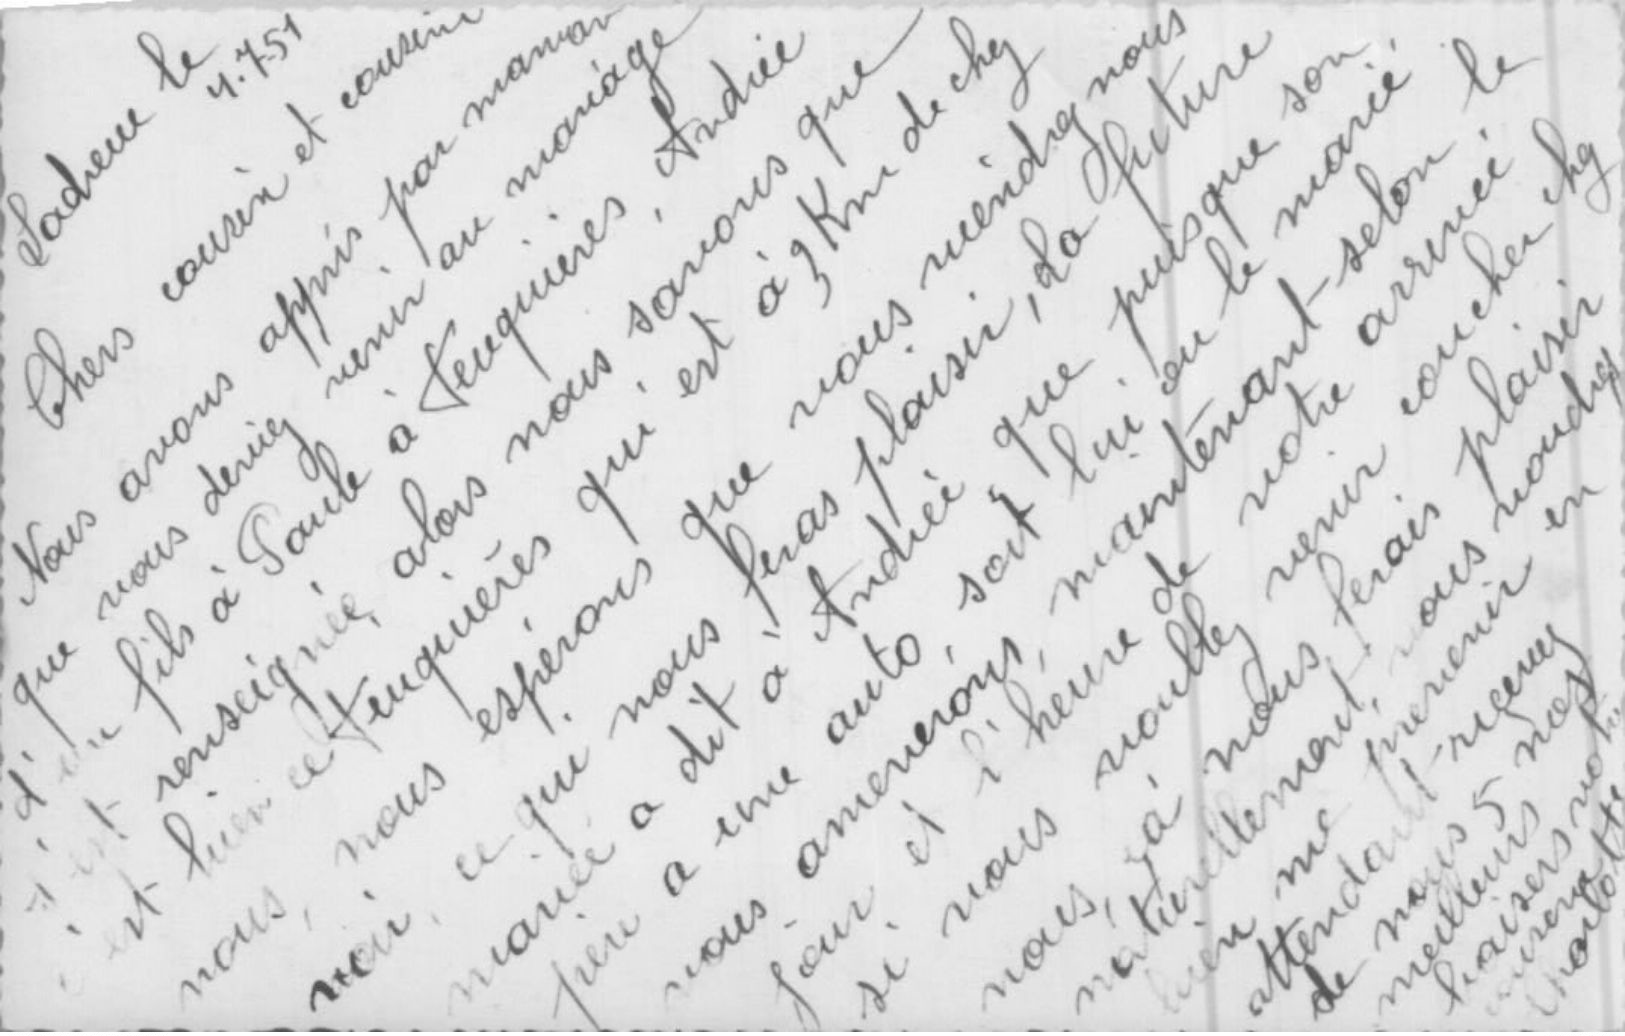 Ladreue le
4.7.51
Chers cousin et cousine
Nous avons appris par maman
que vous deviez venir au mariage
d'un fils à Paule à Feuquières, Andrée
s'est renseignée, alors nous savons que
c'est bien ce Feuquières qui est à 3 Km de chez
nous, nous espérons que vous viendrez nous
voir, ce qui nous feras plaisir, la future
mariée a dit à Andrée que puisque son
peu a une auto, soit lui ou le marié,
vous amenerons, maintenant selon le
jour et l'heure de votre arrivée
si vous voulez venir coucher chez
nous, çà nous ferais plaisir
naturellement, vous voudrez
bien me prevenir en
attendant recevez
de nous 5 nos
meilleurs
baisers votre
cousine